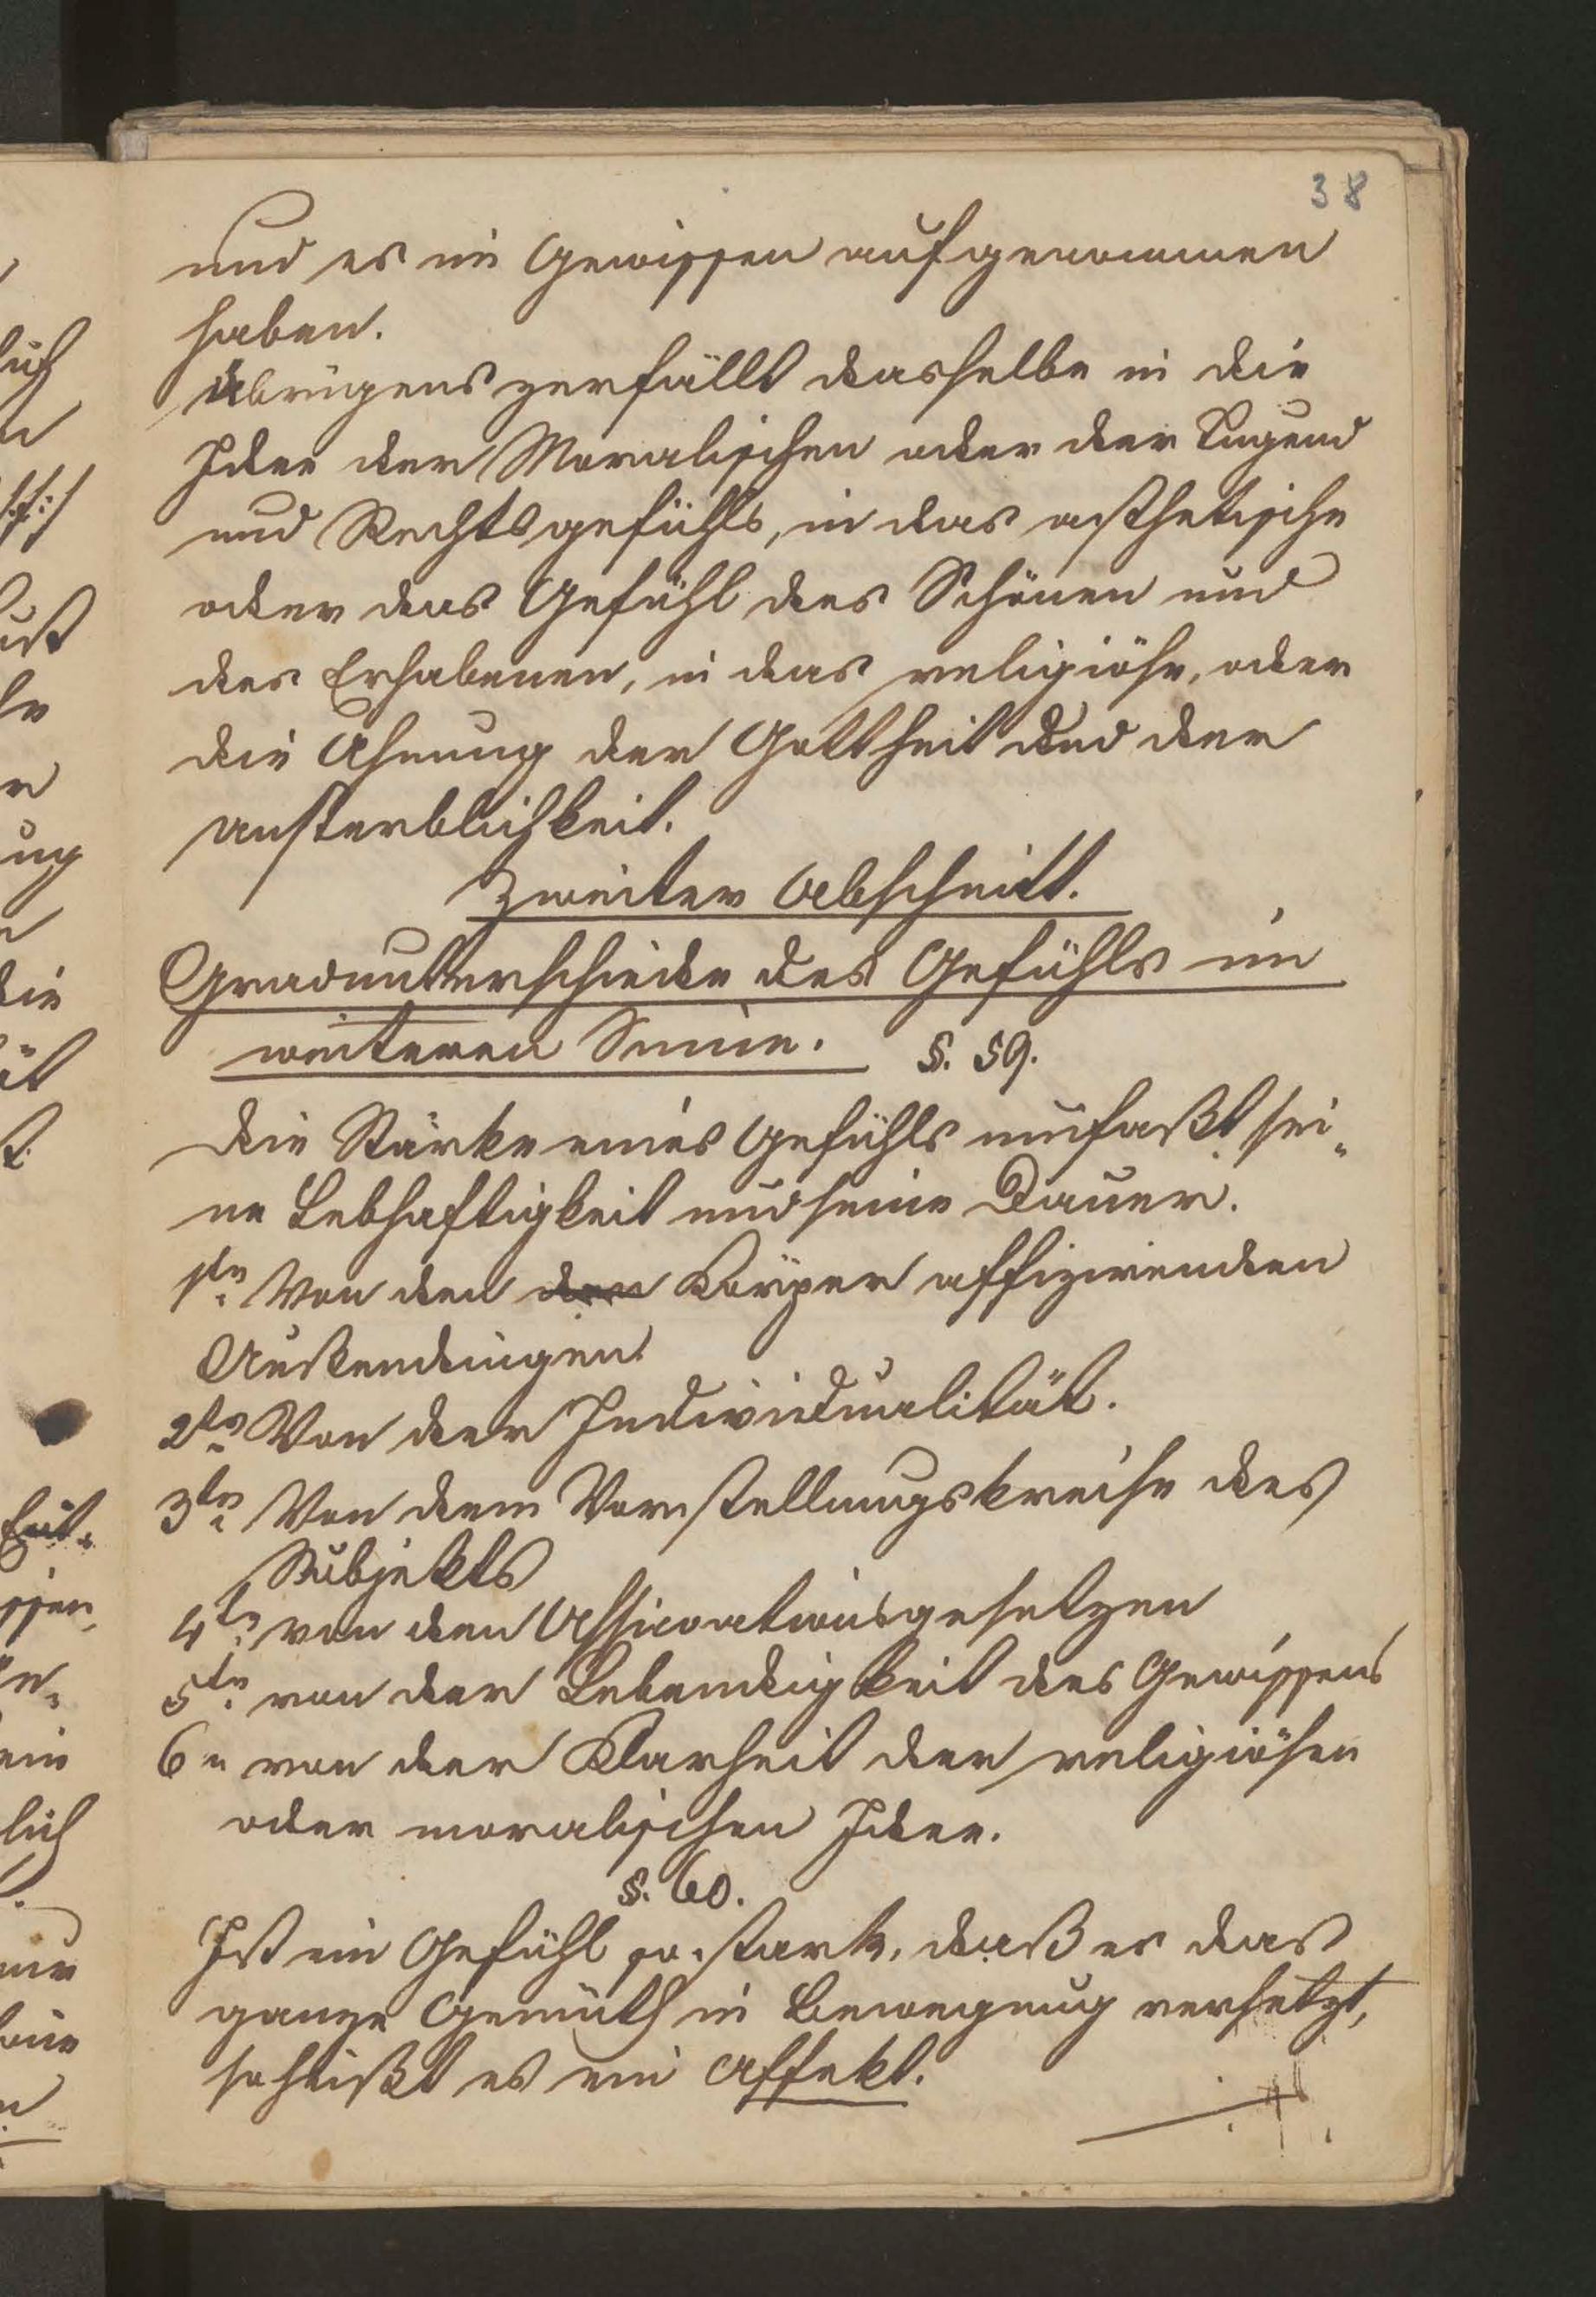 38
und es im Gewissen aufgenommen
haben.
Übrigens zerfällt dasselbe in die
Idee der Moralischen oder der Tugend
und Rechtsgefühls, in das asthetische
oder das Gefühl des Schönen und
des Erhabenen, in das religiöse, oder
die Ahnung der Gottheit und der
unsterblichkeit.
Zweiter Abschnitt.
Gradunterschiede des Gefühls im
weiteren Sinne. §. 59.
Die Stärke eines Gefühls umfaßt sei„
ne Lebhaftigkeit und seine Dauer.
1te Von den den Körper affizirenden
Außendingen.
2te Von der Individualität.
3te Von dem Vorstellungskreise des
Subjekts
4te von den Assicoationsgesetzen
5te von der Lebendigkeit des Gewissens
6 von der Klarheit der religiösen
oder moralischen Idee.
§. 60.
Ist ein Gefühl so stark, daß es das
ganze Gemüth in Bewegung versetzt,
so heißt es ein Affekt.